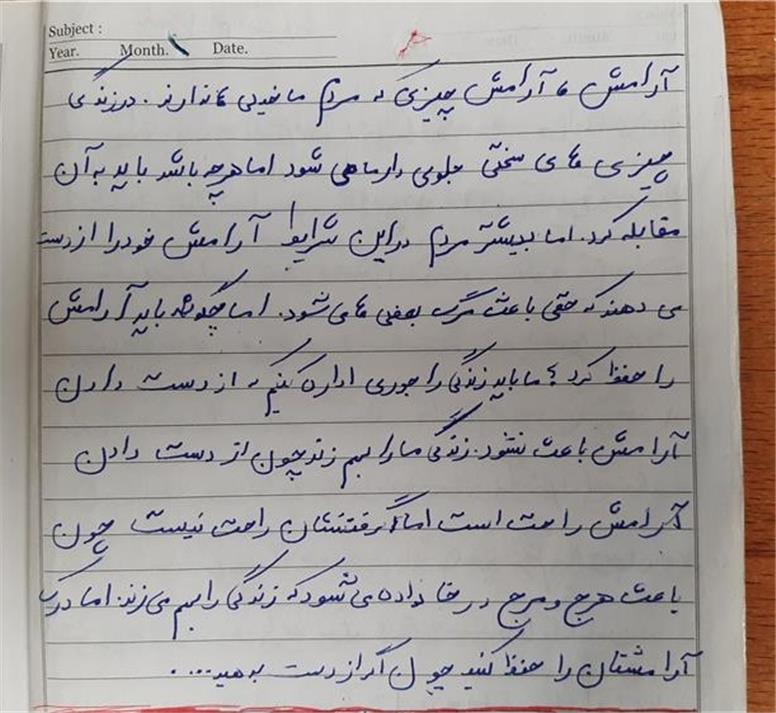 Subject :
Year. Month. Date.
آرامش ، آرامش چیزی که مردم ما خیلی ها ندارند . در زندگی
چیزی های سختی جلوی دار ما می شود اما هر چه باشد باید به آن
مقابله کرد. اما بیشتر مردم در این شرایط آرامش خود را از دست
می دهند که حتی باعث مرگ بعضی ها می شود. اما چگونه باید آرامش
را حفظ کرد ؟ ما باید زندگی را جوری اداره کنیم که از دست دادن
آرامش باعث نشود. زندگی ما را بهم زند چون از دست دادن
آرامش راحت است اما گرفتنتان راحت نیست چون
باعث هرج و مرج در خانواده می شود که زندگی را بهم می زند. اما
آرامشتان را حفظ کنید چون اگر از دست بدهید....